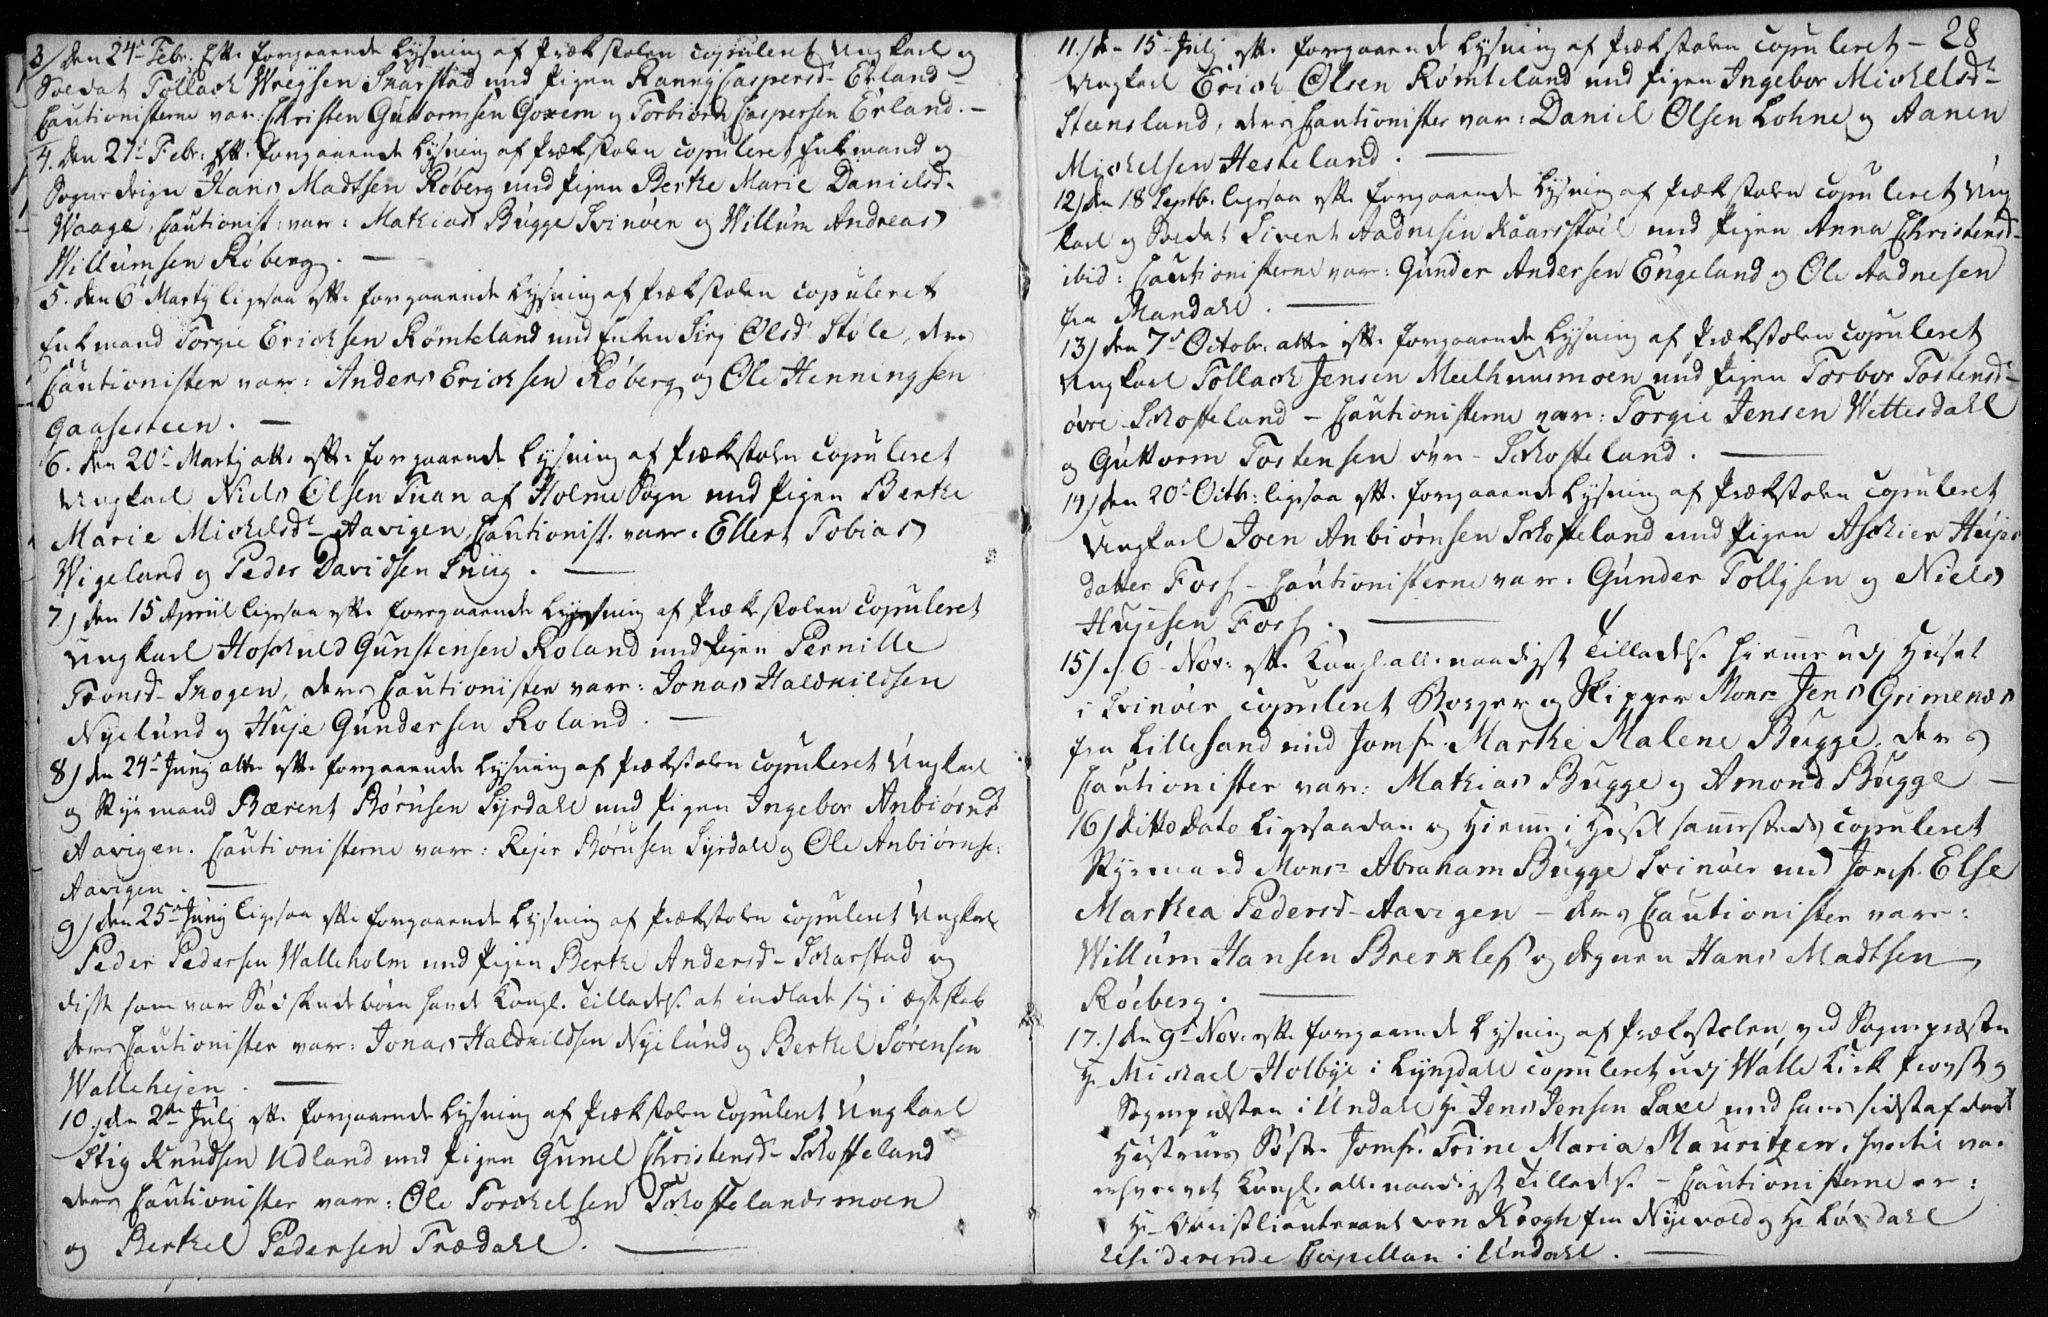 3/ den 24de Febr. Eftr. forgaaende Lysning af Prækestolen copuleret Ungkarl og
Soldat Tollach Wreysen Skarstad med Pigen Ranng Caspersd. Erland
Cautionisterne var: Christen Guttormsen Goxem og Torbiörn Caspersen Erland. -
4. den 27de Febr: Eftr. forgaaende Lysning af Prækestolen copuleret Enkemand og
Sogne degn Hans Madtsen Röberg med Pigen Berthe Marie Danielsd.
Waage, Cautionist: var: Mathias Bugge Svinöen og Willum Andreas
Willumsen Röberg. -
5. den 6te Martij ligesaa eftr. forgaaende Lysning af Prækestolen copuleret
Enkemand Torgie Erichsen Römteland med Enken Sirj Olsd. Stöle, deres
Cautionister var: Anders Erichsen Röberg og Ole Henningsen
Gaasesteen. -
6. den 20de Martij atter eftr. forgaaende Lysning af Prækestolen copuleret
Ungkarl Niels Olsen Tuan af Holme Sogn med Pigen Berthe
Marie Michelsdr. Aavigen, Cautionist. var: Ellert Tobias
Wigeland og Peder Davidsen Sniig. -
7/ den 15 Apriil ligesaa eftr. forgaaende Lysning af Prækestolen copuleret
Ungkarl Hoschuld Gunstensen Roland med Pigen Pernille
Tronsd. Skogen, deres Cautionister var: Jonas Haldkildsen
Nyelund og Huje Gundersen Roland. -
8/ den 24de Junij atter eftr. forgaaende Lysning af Prækestolen copuleret Ungkarl
og Styrmand Bærent Börusen Syrdahl med Pigen Ingebor Anbiörnsd.
Aavigen. Cautionisterne var: Rejer Börusen Syrdahl og Ole Anbiörnse:
Aavigen. -
9/ den 25de Junij ligesaa eftr. forgaaende Lysning af Prækestolen copuleret Ungkarl
Peder Pedersen Walleholm med Pigen Berthe Andersd. Scharstad og
disse som var Södskendebörn havde Kongl. Tilladelse at indlade sig i Ægteskab
deres Cautionister var: Jonas Haldkildsen Nyelund og Berthel Sörensen
Wallehejen. -
10. den 2den Julij eftr. forgaaende Lysning af Prækestolen copuleret Ungkarl
Stig Knudsen Udland med Pigen Gunel Christensd. Schoffeland
deres Cautionister var: Ole Torchelsen Schoffelandsmoen
og Berthel Pedersen Trædahl. -
28
11./ den 15de Julij eftr. forgaaende Lysning af Prækestolen copuleret -
Ungkarl Erich Olsen Römteland med Pigen Ingebor Michelsdr.
Steensland, deres Cautionister var: Daniel Olsen Lohne og Aanen
Michelsen Hesteland. -
12/ den 18 Septbr. ligesaa eftr. forgaaende Lysning af Prækestolen copuleret Ung
karl og Soldat Sivert Aadnesen Kaarsstöel med Pigen Anna Christensd.
ibid: Cautionisterne var: Gunder Andersen Engeland og Ole Aadnesen
fra Mandahl. -
13/ den 7de Octobr. atter eftr. forgaaende Lysning af Prækestolen copuleret
Ungkarl Tollach Jensen Meelhuusmoen med Pigen Torbor Tostensd.
övre Schoffeland - Cautionisterne var: Torgie Jensen Wettesdahl
og Guttorm Tostensen övre Schoffeland. -
14/ den 20de Octbr: ligesaa eftr. forgaaende Lysning af Prækestolen copuleret
Ungkarl Joen Anbiörnsen Schoffeland med Pigen Aschier Hujes
datter Foss - Cautionisterne var: Gunder Tollijsen og Niels
Hujesen Foss. -
15/ d. 6te Nov: eftr. Kongl. aller naadigst Tilladelse hiemme udj Huset
i Svinöer copuleret Borger og Skipper Monsr Jens Grimenæs
fra Lillesand med Jomfr. Marthe Malene Bugge, deres
Cautionister var: Mathias Bugge og Amond Bugge -
16/ Ditto Dato Ligesaadan og Hiemme i Huset sammesteds copuleret
Styrmand Monsr Abraham Bugge Svinöer med Jomfr. Else
Marthea Pedersd. Aavigen - deres Cautionister var:
Willum Hansen Brerklef og degnen Hans Madtsen
Röeberg. -
17./ den 9de Nov. eftr. forgaaende Lysning af Prækestolen, ved Sognepræsten
Hr Michael Holbye i Lyngdahl copuleret udj Walle Kirk Provst og
Sognepræsten i Undahl Hr Jens Jensen Saxe med hans sidst afdöde
Hustrues Söster Jomfr. Trine Maria Mauritzen, hvortil var
erhvervet Kongl. aller naadigst Tilladelse - Cautionisterne er:
Hr Obristlieutenant von Krogh fra Nyevold og Hr Lövdahl
residerende Capellan i Undahl. -